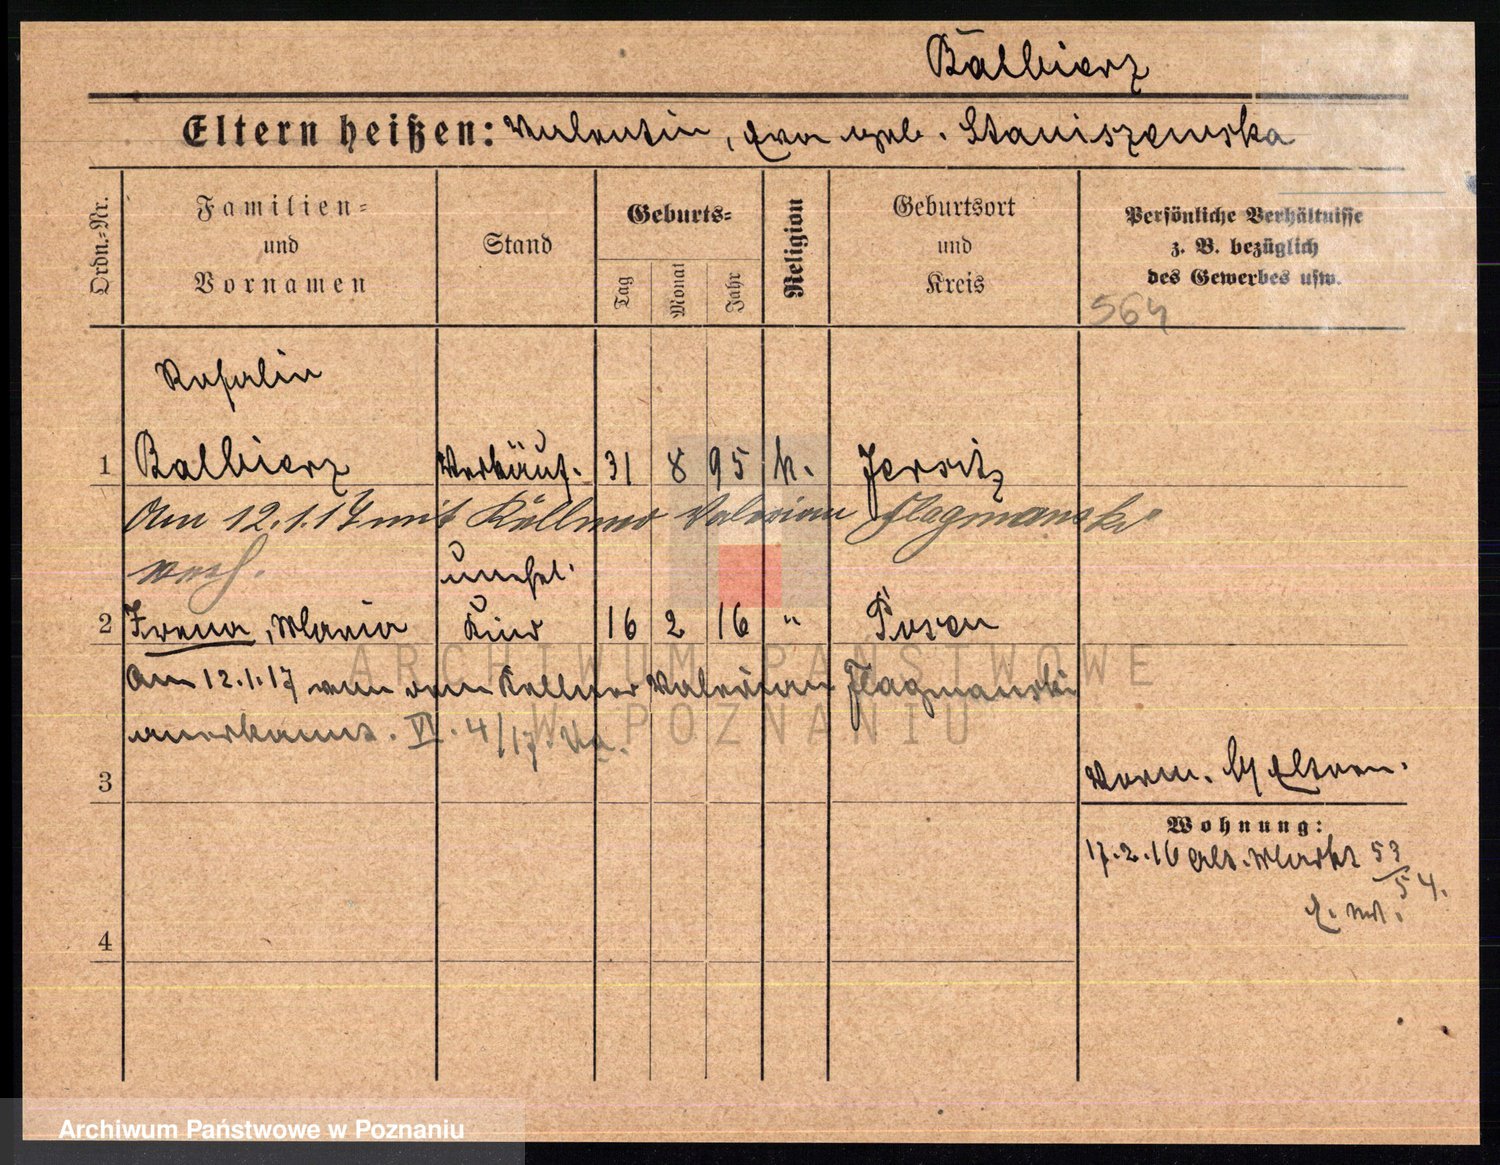 Balbierz
Eltern heißen: Valentin, Eva geb. Staniszewska
Ordn.-Nr.
Familien-
und
Vornamen
Stand
Geburts-
Tag
Monat
Jahr
Religion
Geburtsort
und
Kreis
Persönliche Verhältnisse
z. B. bezüglich
des Gewerbes usw.
564
Rosalie
1 Balbierz Verkäuf. 31 8 95 k. Jersitz
Am 12.1.17 mit Kellner Valerian "Flagmanski"
verh.
unehel.
2 Irena, Maria Kind 16 2 16 " Posen
Am 12.1.17 von dem Kellner Valerian Flagmanski
anerkannt. VI. 4/17.
3
Vorm. Eltern.
Wohnung:
17.2.16 Alt. Markt 53/54.
4
ARCHIWUM PAŃSTWOWE
W POZNANIU
Archiwum Państwowe w Poznaniu